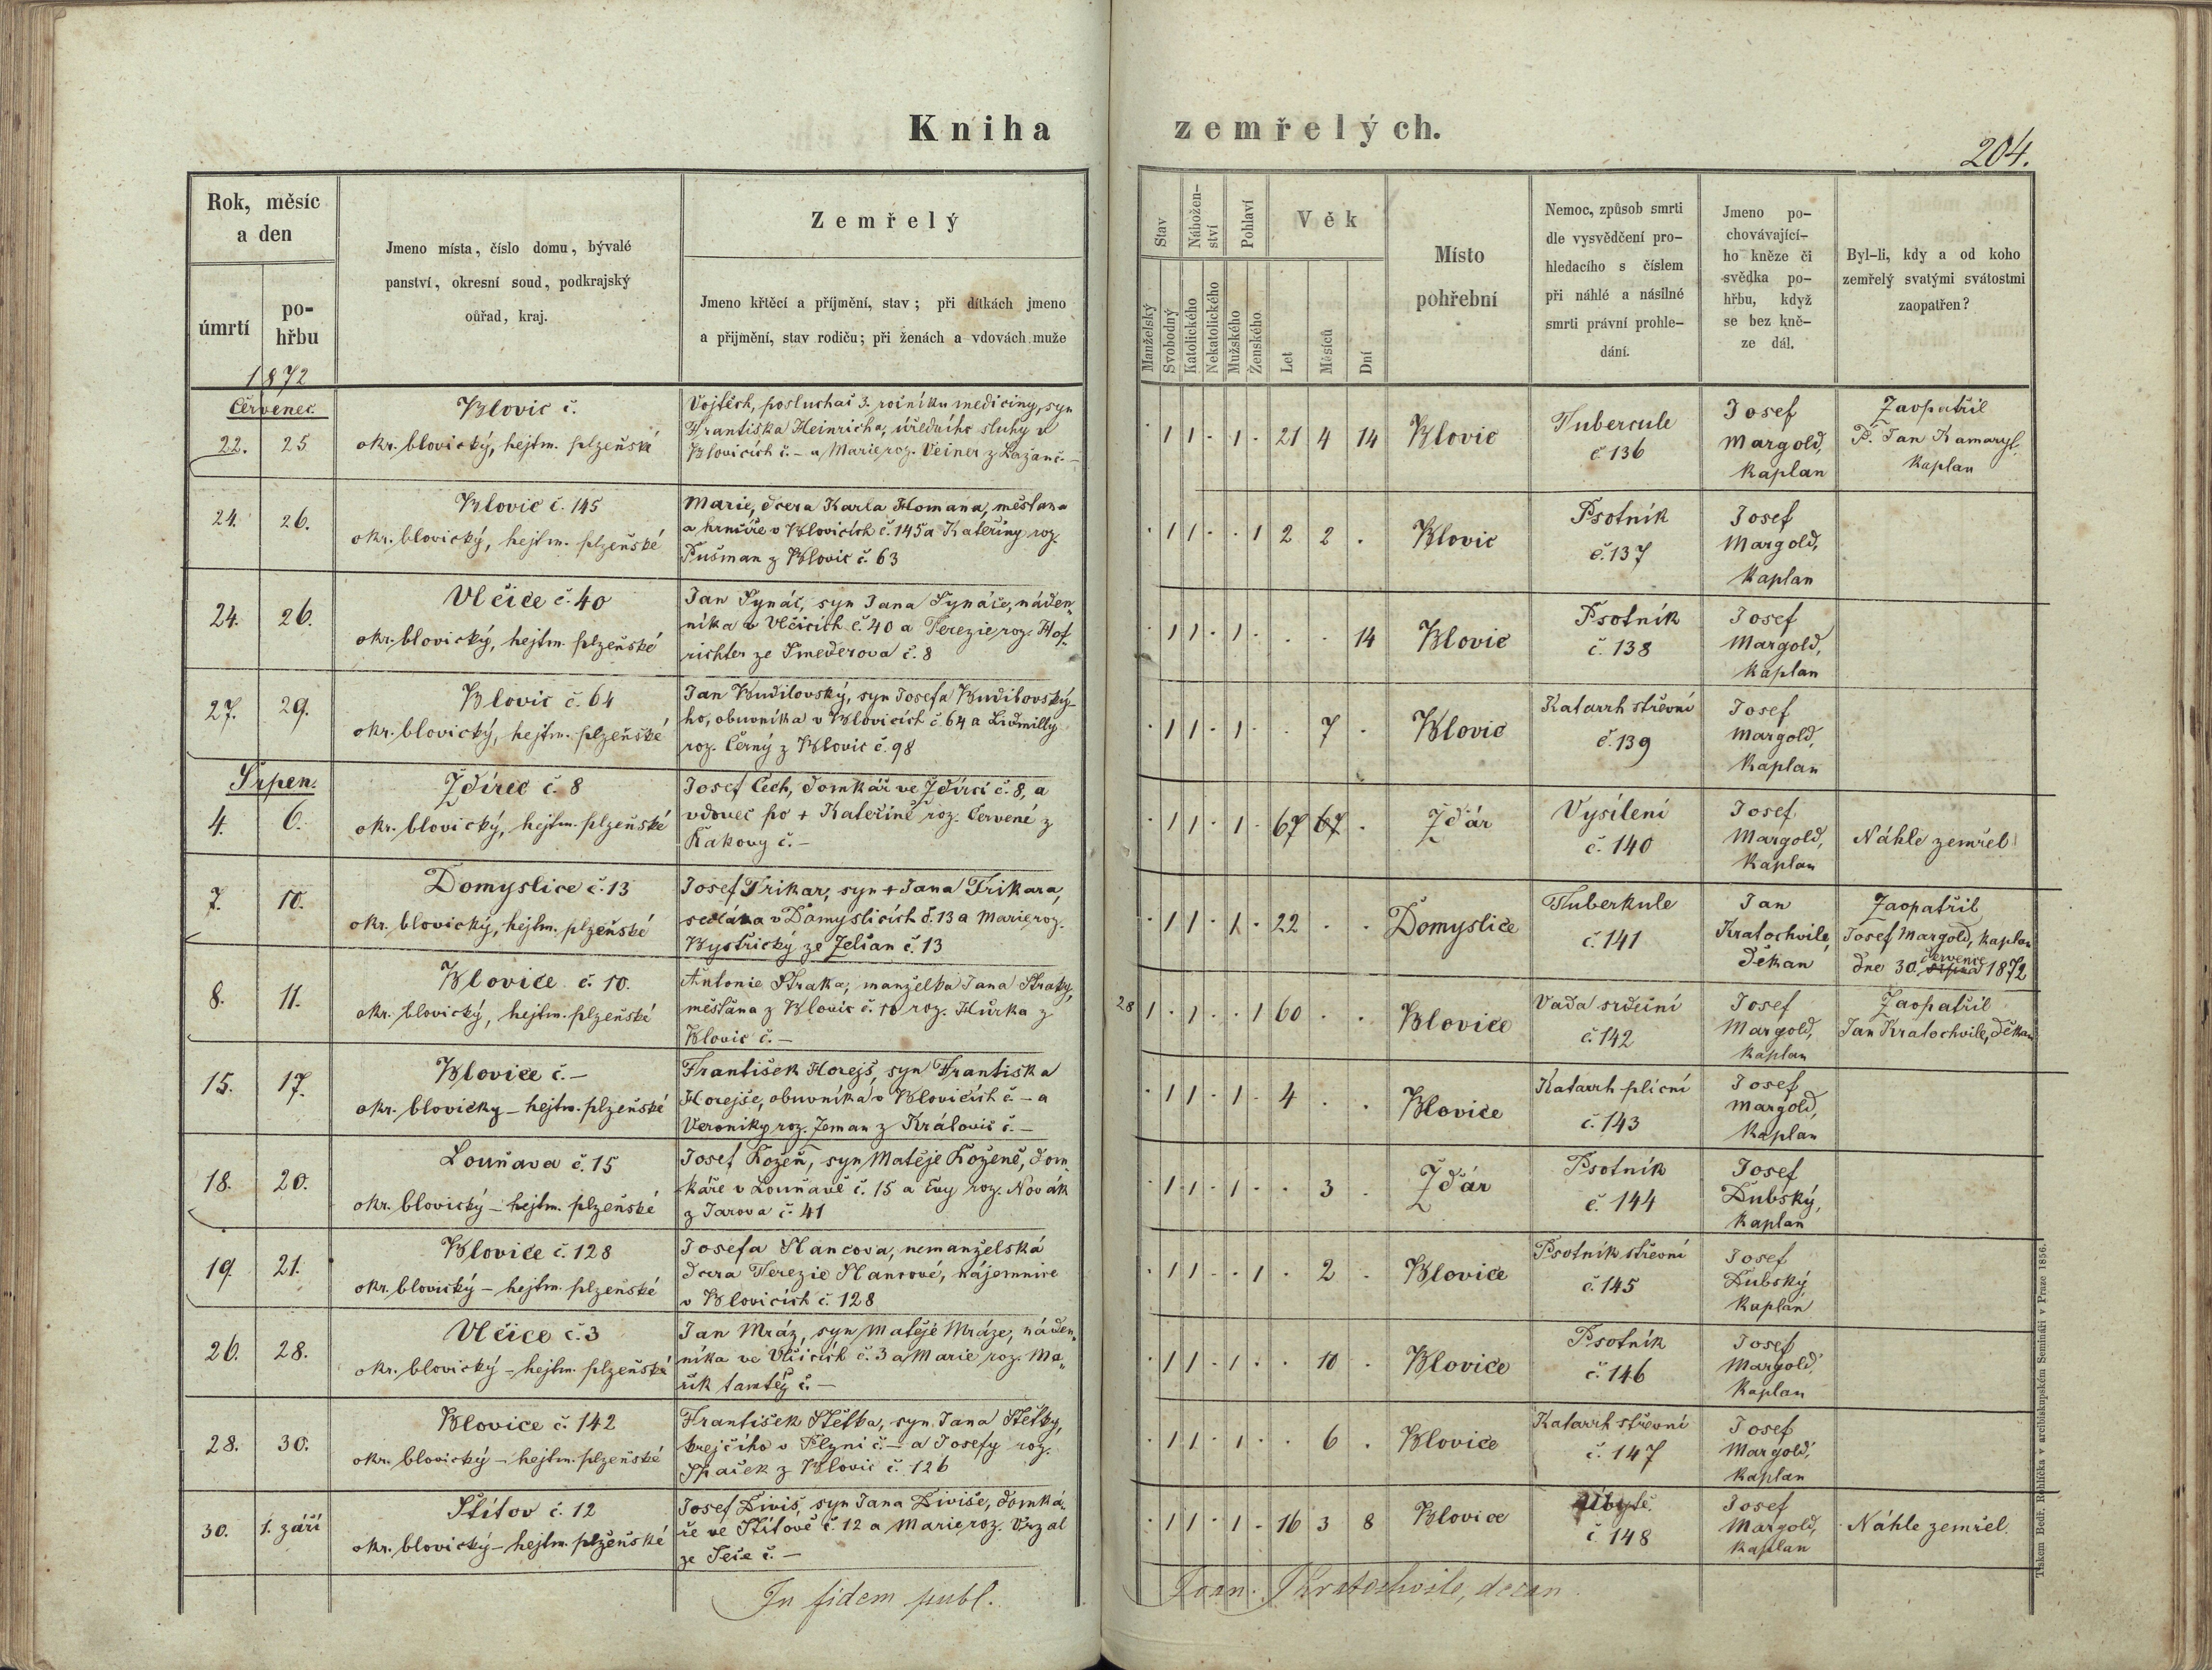 Kniha zemřelých.
204.
Rok, měsíc
a den
úmrtí
po-
hřbu
1872
Jmeno místa, číslo domu, bývalé
panství, okresní soud, podkrajský
ouřad, kraj.
Zemřelý
Jmeno křtěcí a příjmění, stav; při dítkách jmeno
a přijmění, stav rodiču; při ženách a vdovách muže
Stav
Manželský
Svobodný
Nábožen-
ství
Katolického
Nekatolického
Pohlaví
Mužského
Ženského
Věk
Let
Měsíců
Dní
Místo
pohřební
Nemoc, způsob smrti
dle vysvědčení pro-
hledacího s číslem
při náhlé a násilné
smrti právní prohle-
dání.
Jmeno po-
chovávající-
ho kněze či
svědka po-
hřbu, když
se bez kně-
ze dál.
Byl-li, kdy a od koho
zemřelý svatými svátostmi
zaopatřen?
Červenec
22. 25
Blovic č.
okr. blovický, hejtm. plzeňské
Vojtěch, posluchač 3. ročníku mediciny, syn
Františka Heinricha, úředního sluhy v
Blovicích č. – a Marie roz. Veiner z Lažan č. –
1 1 . 1 . 21 4 14
Blovic
Tubercule
č 136
Josef
Margold,
kaplan
Zaopatřil
P. Jan Kamaryt.
kaplan
24. 26.
Blovic č. 145
okr. blovický, hejtm. plzeňské
Marie, dcera Karla Homana, měšťana
a hrnčíře v Blovicích č. 145 a Kateřiny roz.
Pušman z Blovic č. 63
. 1 1 . . 1 2 2 .
Blovic
Psotník
č. 137
Josef
Margold,
kaplan
24. 26.
Vlčice č. 40
okr. blovický, hejtm. plzeňské
Jan Synáč, syn Jana Synáče, náden„
níka v Vlčicích č. 40 a Terezie roz. Hof-
richter ze Smederova č. 8
. 1 1 . 1 . . . 14
Blovic
Psotník
č. 138
Josef
Margold,
kaplan
27. 29.
Blovic č. 64
okr. blovický, hejtm. plzeňské
Jan Budilovský, syn Josefa Budilovský-
ho, obuvníka v Blovicích č. 64 a Lidmilly
roz. Černý z Blovic č. 98
. 1 1 . 1 . . 7 .
Blovic
Katarrh střevní
č. 139
Josef
Margold,
kaplan
Srpen.
4. 6.
Ždírec č. 8
okr. blovický, hejtm. plzeňské
Josef Čech, domkář ve Ždírci č. 8, a
vdovec po + Kateřině roz. Červené z
Řakovy č. –
. 1 1 . 1 . 67 67 .
Žďár
Vysílení
č. 140
Josef
Margold,
kaplan
Náhle zemřel
7. 10.
Domyslice č. 13
okr. blovický, hejtm. plzeňské
Josef Trikar, syn + Jana Trikara,
sedláka v Domyslicích č. 13 a Marie roz.
Bystřický ze Želčan č. 13
. 1 1 . 1 . 22 . .
Domyslice
Tuberkule
č. 141
Jan
Kratochvile,
děkan
Zaopatřil
Josef Margold, kaplan
července
dne 30. srpna 1872
8. 11.
Blovice č. 10.
okr. blovický, hejtm. plzeňské
Antonie Straka, manželka Jana Straky,
měšťana z Blovic č. 10 roz. Hůrka z
Blovic č. –
28
1 . 1 . . 1 60 . .
Blovice
Vada srdeční
č. 142
Josef
Margold,
kaplan
Zaopatřil
Jan Kratochvile, děkan
15. 17.
Blovice č. –
okr. blovický – hejtm. plzeňské
František Horejš, syn Františka
Horejše, obuvníka v Blovicích č. – a
Veroniky roz. Zeman z Královic č. –
. 1 1 . 1 . 4 . .
Blovice
Katarrh plicní
č. 143
Josef
Margold,
kaplan
18. 20.
Louňava č. 15
okr. blovický – hejtm. plzeňské
Josef Kožen, syn Matěje Koženě, dom„
káře v Louňavě č. 15 a Evy roz. Novák
z Jarova č. 41
. 1 1 . 1 . . 3 .
Žďár
Psotník
č. 144
Josef
Dubský,
kaplan
19. 21.
Blovice č. 128
okr. blovický – hejtm. plzeňské
Josefa Hancova, nemanželská
dcera Terezie Hancové, nájemnice
v Blovicích č. 128
. 1 1 . . 1 . 2 .
Blovice
Psotník střevní
č. 145
Josef
Dubský
kaplan
26. 28.
Vlčice č. 3
okr. blovický – hejtm. plzeňské
Jan Mráz, syn Matěje Mráze, náden„
níka ve Vlčicích č. 3 a Marie roz. Ma„
řik tamtéž č. –
. 1 1 . 1 . . 10 .
Blovice
Psotník
č. 146
Josef
Margold,
kaplan
28. 30.
Blovice č. 142
okr. blovický – hejtm. plzeňské
František Štětka, syn Jana Štětky,
krejčího v Plzni č. – a Josefy roz.
Špaček z Blovic č. 126
. 1 1 . 1 . . 6 .
Blovice
Katarrh střevní
č. 147
Josef
Margold,
kaplan
30. 1. září
Štítov č. 12
okr. blovický – hejtm. plzeňské
Josef Diviš, syn Jana Diviše, domká„
ře ve Štítově č. 12 a Marie roz. Vrzal
ze Seče č. –
. 1 1 . 1 . 16 3 8
Blovice
č. 148
Josef
Margold,
kaplan
Náhle zemřel.
In fidem publ.
Joan. Kratochvile, decan
Tiskem Bedř. Rohlíčka v arcibiskupském Semináři v Praze 1856.